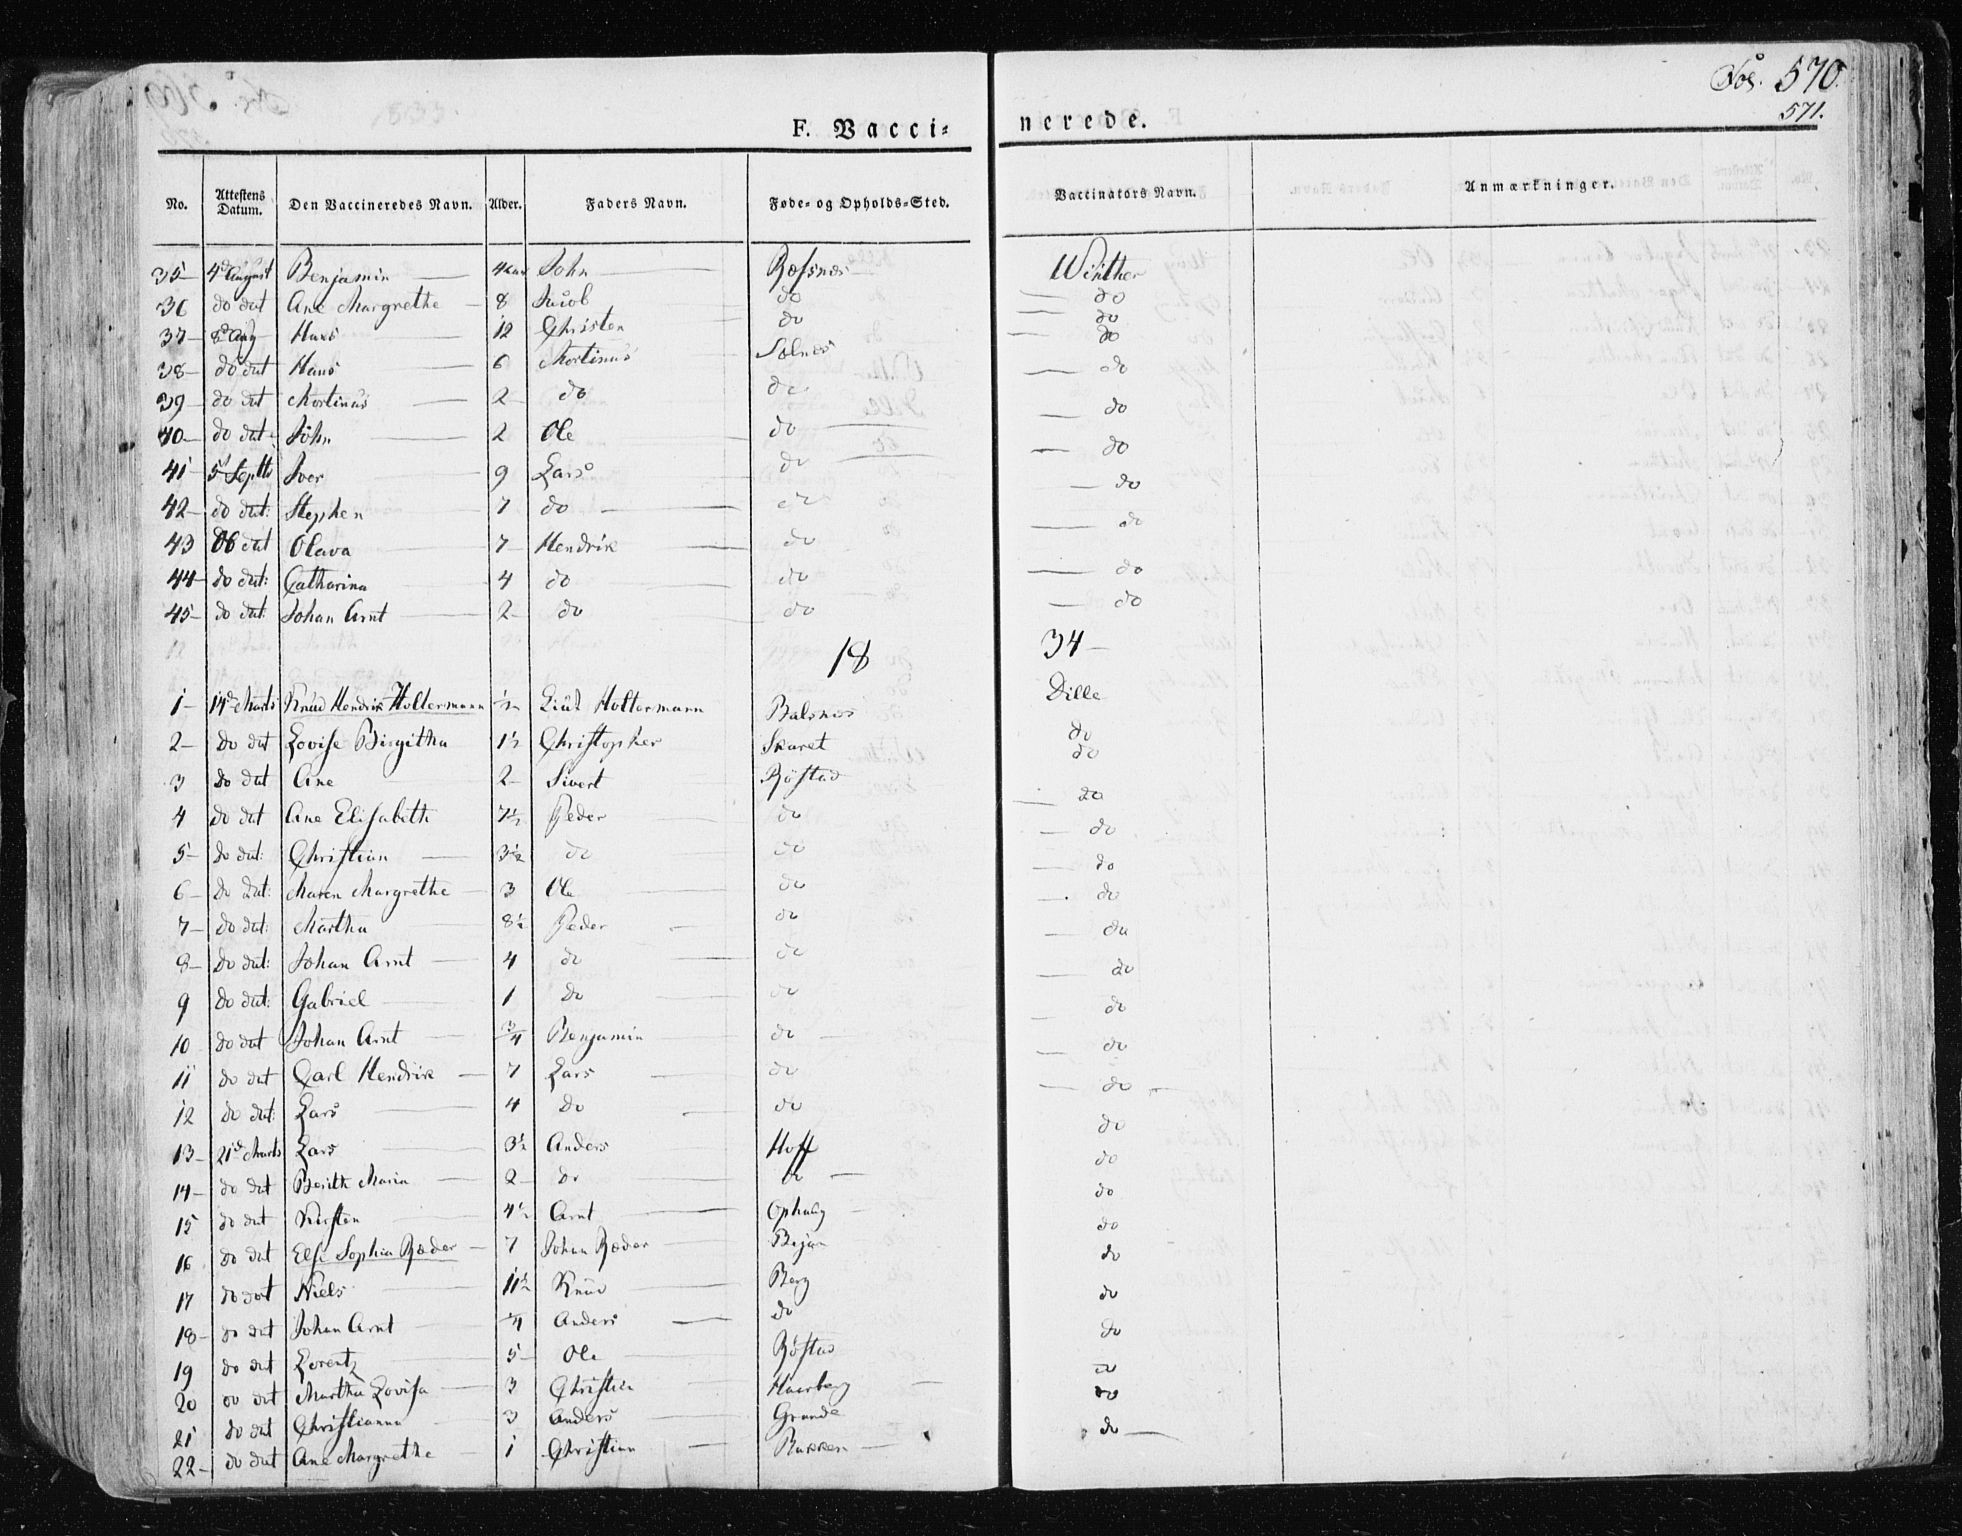 Fol. 570.
571.
F. Vaccinerede.
No. Attestens Datum. Den Vaccineredes Navn. Alder. Faders Navn. Føde- og Opholds-Sted. Vaccinators Navn. Anmærkninger.
35 4d August Benjamin 4 John Winther
36 do dat Ane Margrethe 8 Jacob do do
37 8d Aug Hans 12 Christen do do
38 do dat Hans 6 Mortinus do
39 do dat Mortinus 2 do do do
40 do dat John 2 Ole do do
41 5d Septb Iver 9 Lars do do
42 do dat: Stephen 7 do do do
43 do dat Olava 7 Hendrik do
44 do dat: Catharina 4 do do do
45 do dat: Johan Arnt 2 do do do
1834
1 14d Marts Knud Hendrik Holtermann ½ Holtermann Balsnes Dille
2 do dat Lovise Birgitha 1½ Christopher Skaret do
3 do dat Ane 2 Sivert Röstad do
4 do dat Ane Elisabeth 7½ Peder do do
5 do dat: Christian 3½ do do do
6 do dat: Maren Margrethe 3 Ole do do
7 do dat: Martha 8½ Peder do do
8 do dat: Johan Arnt 4 do do do
9 do dat: Gabriel 1 do do do
10 do dat Johan Arnt 3/4 Benjamin do do
11 do dat Carl Hendrik 7 Lars do do
12 do dat: Lars 4 do do do
13 21d Marts Lars 3½ Anders Hoff do
14 do dat Berith Maria 2 do do do
15 do dat Kirsten 4½ Arnt Ophaug do
16 do dat Else Sophia Ræder 7 Johan Ræder Bejan do
17 do dat Niels 11½ Knud Berg do
18 do dat Johan Arnt Anders do do
19 do dat Lorentz 5 Ole Röstad do
20 do dat Martha Lovisa 3 Christian Haarberg do
21 do dat Christianna 3 Anders Grande do
22 do dat Ane Margrethe 1 Christian Bakken do